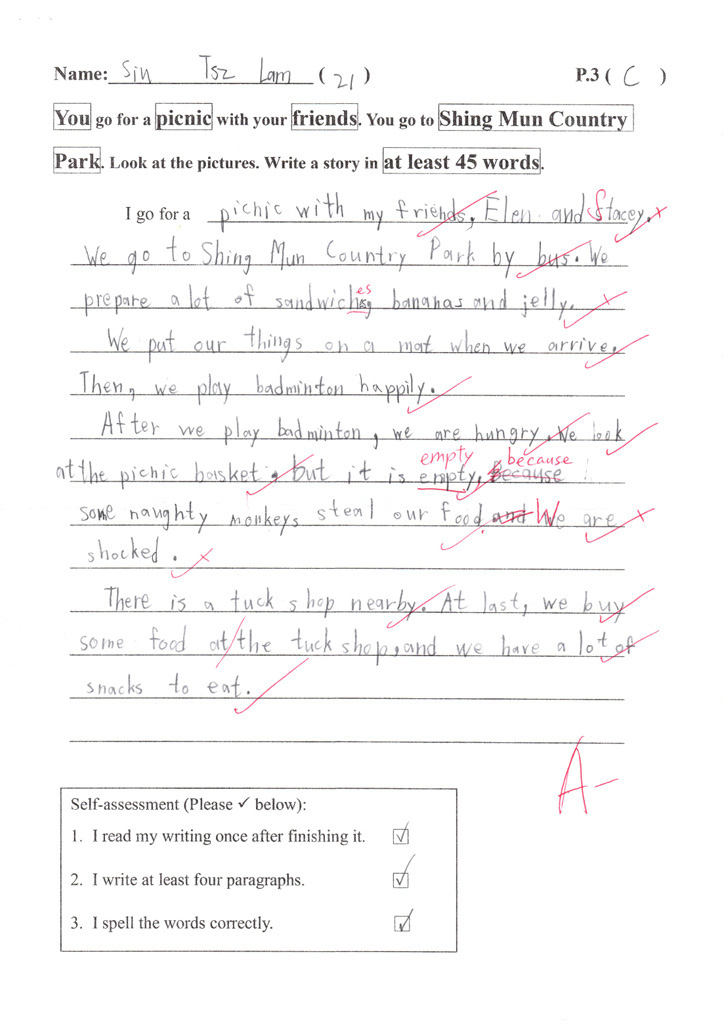 Name: Sin Tsz Lam ( 21 ) P.3 ( C )
You go for a picnic with your friends. You go to Shing Mun Country
Park. Look at the pictures. Write a story in at least 45 words.
I go for a picnic with my friends, Elen and Stacey.
We go to Shing Mun Country Park by bus. We
es
prepare a lot of sandwich bananas and jelly.
We put our things on a mat when we arrive.
Then, we play badminton happily.
After we play badminton, we are hungry. We look
empty because
at the picnic basket, but it is empty, because
some naughty monkeys steal our food and We are
shocked.
There is a tuck shop nearby. At last, we buy
some food at the tuck shop, and we have a lot of
snacks to eat.
A-
Self-assessment (Please ✓ below):
1. I read my writing once after finishing it. ✓
2. I write at least four paragraphs. ✓
3. I spell the words correctly. ✓